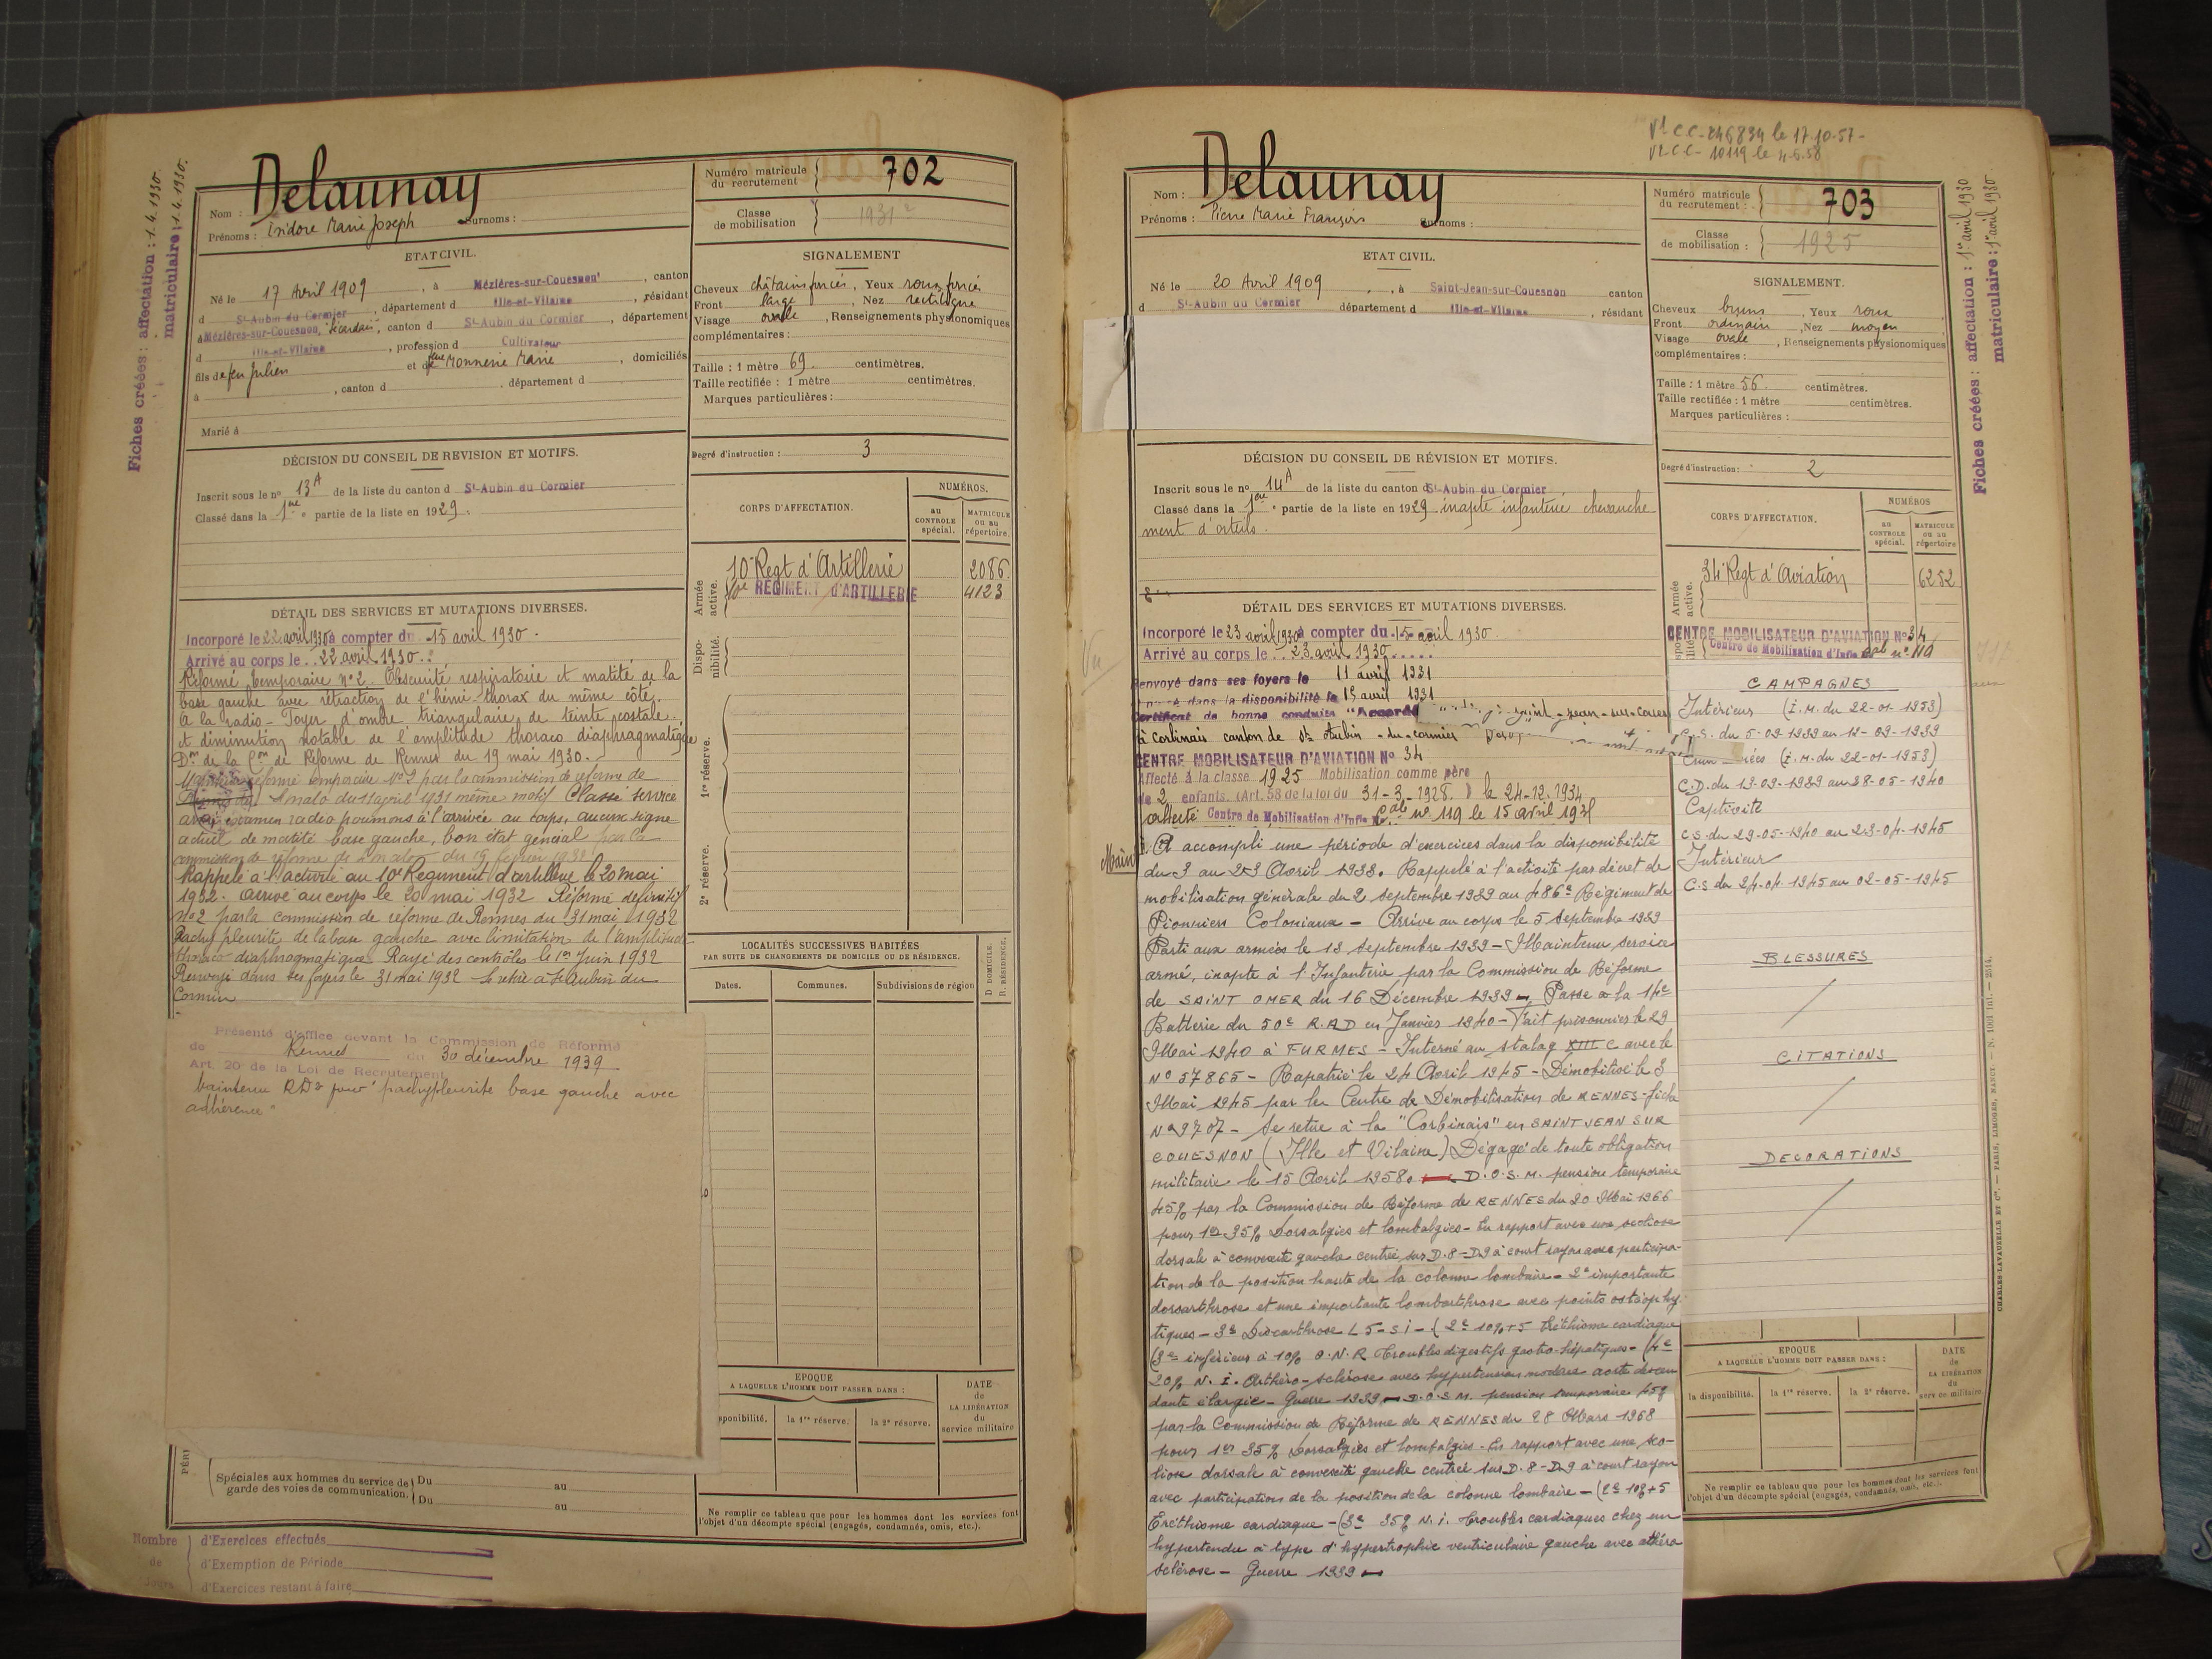 Fiches créées : affectation : 1.4.1930.
matriculaire : 1.4.1930.
Nom : Delaunay
Prénoms : Isidore Marie Joseph Surnoms :
Numéro matricule du recrutement 702
Classe de mobilisation 1931
ETAT CIVIL.
Né le 17 Avril 1909, à Mézières-sur-Couesnon, canton
d St-Aubin du Cormier, département d Ille-et-Vilaine, résidant
à Mézières-sur-Couesnon, canton d St-Aubin du Cormier, département
d Ille-et-Vilaine, profession d Cultivateur
fils de feu Julien et de Monnerie Marie, domiciliés
à , canton d , département d
Marié à
SIGNALEMENT
Cheveux châtains foncés, Yeux roux foncés
Front large, Nez rectiligne
Visage ovale, Renseignements physionomiques
complémentaires :
Taille : 1 mètre 69. centimètres.
Taille rectifiée : 1 mètre centimètres.
Marques particulières :
Degré d'instruction : 3
DÉCISION DU CONSEIL DE REVISION ET MOTIFS.
Inscrit sous le no 13A de la liste du canton d St-Aubin du Cormier
Classé dans la 1ère partie de la liste en 1929.
CORPS D'AFFECTATION.
NUMÉROS.
au CONTROLE spécial.
MATRICULE ou au répertoire.
Armée active.
10e Regt d'Artillerie 2086.
10e RÉGIMENT d'ARTILLERIE 4123
Disponibilité.
1re réserve.
2e réserve.
DÉTAIL DES SERVICES ET MUTATIONS DIVERSES.
Incorporé le 22 avril 1930 à compter du 15 avril 1930.
Arrivé au corps le 22 avril 1930.
Réformé temporaire No 2. Obscurité respiratoire et matité de la
base gauche avec rétraction de l'hémi-thorax du même côté.
A la radio - Foyer d'ombre triangulaire de teinte costale
et diminution notable de l'amplitude thoraco diaphragmatique
Don de la Con de Réforme de Rennes du 19 mai 1930.
réformé temporaire No 2 par la commission de réforme de
St malo du 11 avril 1931 même motif Classé service
armé examen radio poumons à l'arrivée au corps, aucun signe
actuel de matité base gauche, bon état général par la
commission de réforme de St malo du 19 février 1932
Rappelé à l'activité au 10e Régiment d'artillerie le 20 mai
1932. arrivé au corps le 20 mai 1932 Réformé définitif
No 2 par la commission de réforme de Rennes du 31 mai 1932
Pachy pleurite de la base gauche avec limitation de l'amplitude
thoraco diaphragmatique Rayé des contrôles le 1er Juin 1932
Renvoyé dans ses foyers le 31 mai 1932 Se retire à St Aubin du
Cormier
Présenté d'office devant la Commission de Réforme
de Rennes du 30 décembre 1939
Art. 20 de la Loi de Recrutement
Maintenu RD2 pour "pachypleurite base gauche avec
adhérence"
LOCALITÉS SUCCESSIVES HABITÉES
PAR SUITE DE CHANGEMENTS DE DOMICILE OU DE RÉSIDENCE.
Dates. Communes. Subdivisions de région
D. DOMICILE. R. RÉSIDENCE.
EPOQUE
A LAQUELLE L'HOMME DOIT PASSER DANS :
DATE de LA LIBÉRATION du service militaire
sponibilité. la 1re réserve. la 2e réserve.
Ne remplir ce tableau que pour les hommes dont les services font
l'objet d'un décompte spécial (engagés, condamnés, omis, etc.).
PÉRI
Spéciales aux hommes du service de garde des voies de communication.
Du au
Du au
Nombre de Jours
d'Exercices effectués
d'Exemption de Période
d'Exercices restant à faire
Vt CC-246834 le 17.10.57-
Vt CC- 10119 le 4.6.58
Nom : Delaunay
Prénoms : Pierre Marie François Surnoms :
Numéro matricule du recrutement : 703
Classe de mobilisation : 1925
Fiches créées : affectation : 1er avril 1930
matriculaire : 1er avril 1930
ETAT CIVIL.
Né le 20 Avril 1909, à Saint-Jean-sur-Couesnon canton
d St-Aubin du Cormier département d Ille-et-Vilaine, résidant
SIGNALEMENT.
Cheveux bruns Yeux roux
Front ordinaire, Nez moyen
Visage ovale, Renseignements physionomiques
complémentaires :
Taille : 1 mètre 56. centimètres.
Taille rectifiée : 1 mètre centimètres.
Marques particulières :
Degré d'instruction : 2
DÉCISION DU CONSEIL DE RÉVISION ET MOTIFS.
Inscrit sous le no 14A de la liste du canton d St-Aubin du Cormier
Classé dans la 1ère partie de la liste en 1929 inapte infanterie chevauche
ment d'orteils.
CORPS D'AFFECTATION.
NUMÉROS
au CONTROLE spécial.
MATRICULE ou au répertoire
Armée active.
34e Regt d'Aviation 6252
CENTRE MOBILISATEUR D'AVIATION No 34
Centre de Mobilisation d'Infie Cale no 119
DÉTAIL DES SERVICES ET MUTATIONS DIVERSES.
Vu
Incorporé le 23 avril 1930 à compter du 15 avril 1930.
Arrivé au corps le 23 avril 1930
Renvoyé dans ses foyers le 11 avril 1931
dans la disponibilité le 15 avril 1931
Certificat de bonne conduite "Accordé" saint-jean-sur-coues
à Corbinais canton de St Aubin-du-cormier
CENTRE MOBILISATEUR D'AVIATION No 34
Affecté à la classe 1925 Mobilisation comme père
de 2 enfants. (Art. 58 de la loi du 31-3-1928.) le 24-12-1934
affecté Centre de Mobilisation d'Infie Cale no 119 le 15 avril 1938
A accompli une période d'exercices dans la disponibilité
du 3 au 23 Avril 1933. Rappelé à l'activité par décret de
mobilisation générale du 2 septembre 1939 au 486e Régiment de
Pionniers Coloniaux - Arrivé au corps le 5 Septembre 1939
Parti aux armées le 13 Septembre 1939 - Maintenu service
armé, inapte à l'Infanterie par la Commission de Réforme
de SAINT OMER du 16 Décembre 1939 - Passé à la 14e
Batterie du 50e R.A.D en Janvier 1940 - Fait prisonnier le 29
Mai 1940 à FURMES - Interné au stalag XIII C avec le
No 57865 - Rapatrié le 24 Avril 1945 - Démobilisé le 3
Mai 1945 par le Centre de Démobilisation de RENNES - fiche
No 9707 - Se retire à la "Corbinais" en SAINT JEAN SUR
COUESNON (Ille et Vilaine) Dégagé de toute obligation
militaire le 15 Avril 1958. D.O.S.M. pension temporaire
45% par la Commission de Réforme de RENNES du 20 Mai 1966
pour 1er 35% Dorsalgies et lombalgies - En rapport avec une scoliose
dorsale à convexité gauche centrée sur D.8-D9 à court rayon avec participa-
tion de la position haute de la colonne lombaire - 2e importante
dorsarthrose et une importante lombarthrose avec points ostéophy-
tiques - 3e Discarthrose L5-S1 - (2e 10%+5 Eréthisme cardiaque
(3e inférieur à 10% O.N.R Troubles digestifs gastro-hépatiques - (4e
20% N.I. Arthéro-sclérose avec hypertension modérée aorte descen
dante élargie - Guerre 1939 - D.O.S.M. pension temporaire 45%
par la Commission de Réforme de RENNES du 28 Mars 1968
pour 1er 35% Dorsalgies et lombalgies - En rapport avec une sco-
liose dorsale à convexité gauche centrée sur D.8-D9 à court rayon
avec participation de la position de la colonne lombaire - (2e 10%+5
Eréthisme cardiaque - (3e 35% N.I. Troubles cardiaques chez un
hypertendu à type d'hypertrophie ventriculaire gauche avec athéro
sclérose - Guerre 1939 -
CAMPAGNES
Intérieur (I.M. du 22-01-1953)
C.S. du 5-09-1939 au 12-09-1939
(I.M. du 22-01-1953)
C.D. du 13-09-1939 au 28-05-1940
Captivité
C.S. du 29-05-1940 au 23-04-1945
Intérieur
C.S. du 24-04-1945 au 02-05-1945
BLESSURES
CITATIONS
DECORATIONS
EPOQUE
A LAQUELLE L'HOMME DOIT PASSER DANS :
DATE de LA LIBÉRATION du service militaire
la disponibilité. la 1re réserve. la 2e réserve.
Ne remplir ce tableau que pour les hommes dont les services font
l'objet d'un décompte spécial (engagés, condamnés, omis, etc.).
CHARLES-LAVAUZELLE ET Cie. — PARIS, LIMOGES, NANCY. — N. 1001 Int. — 2514.